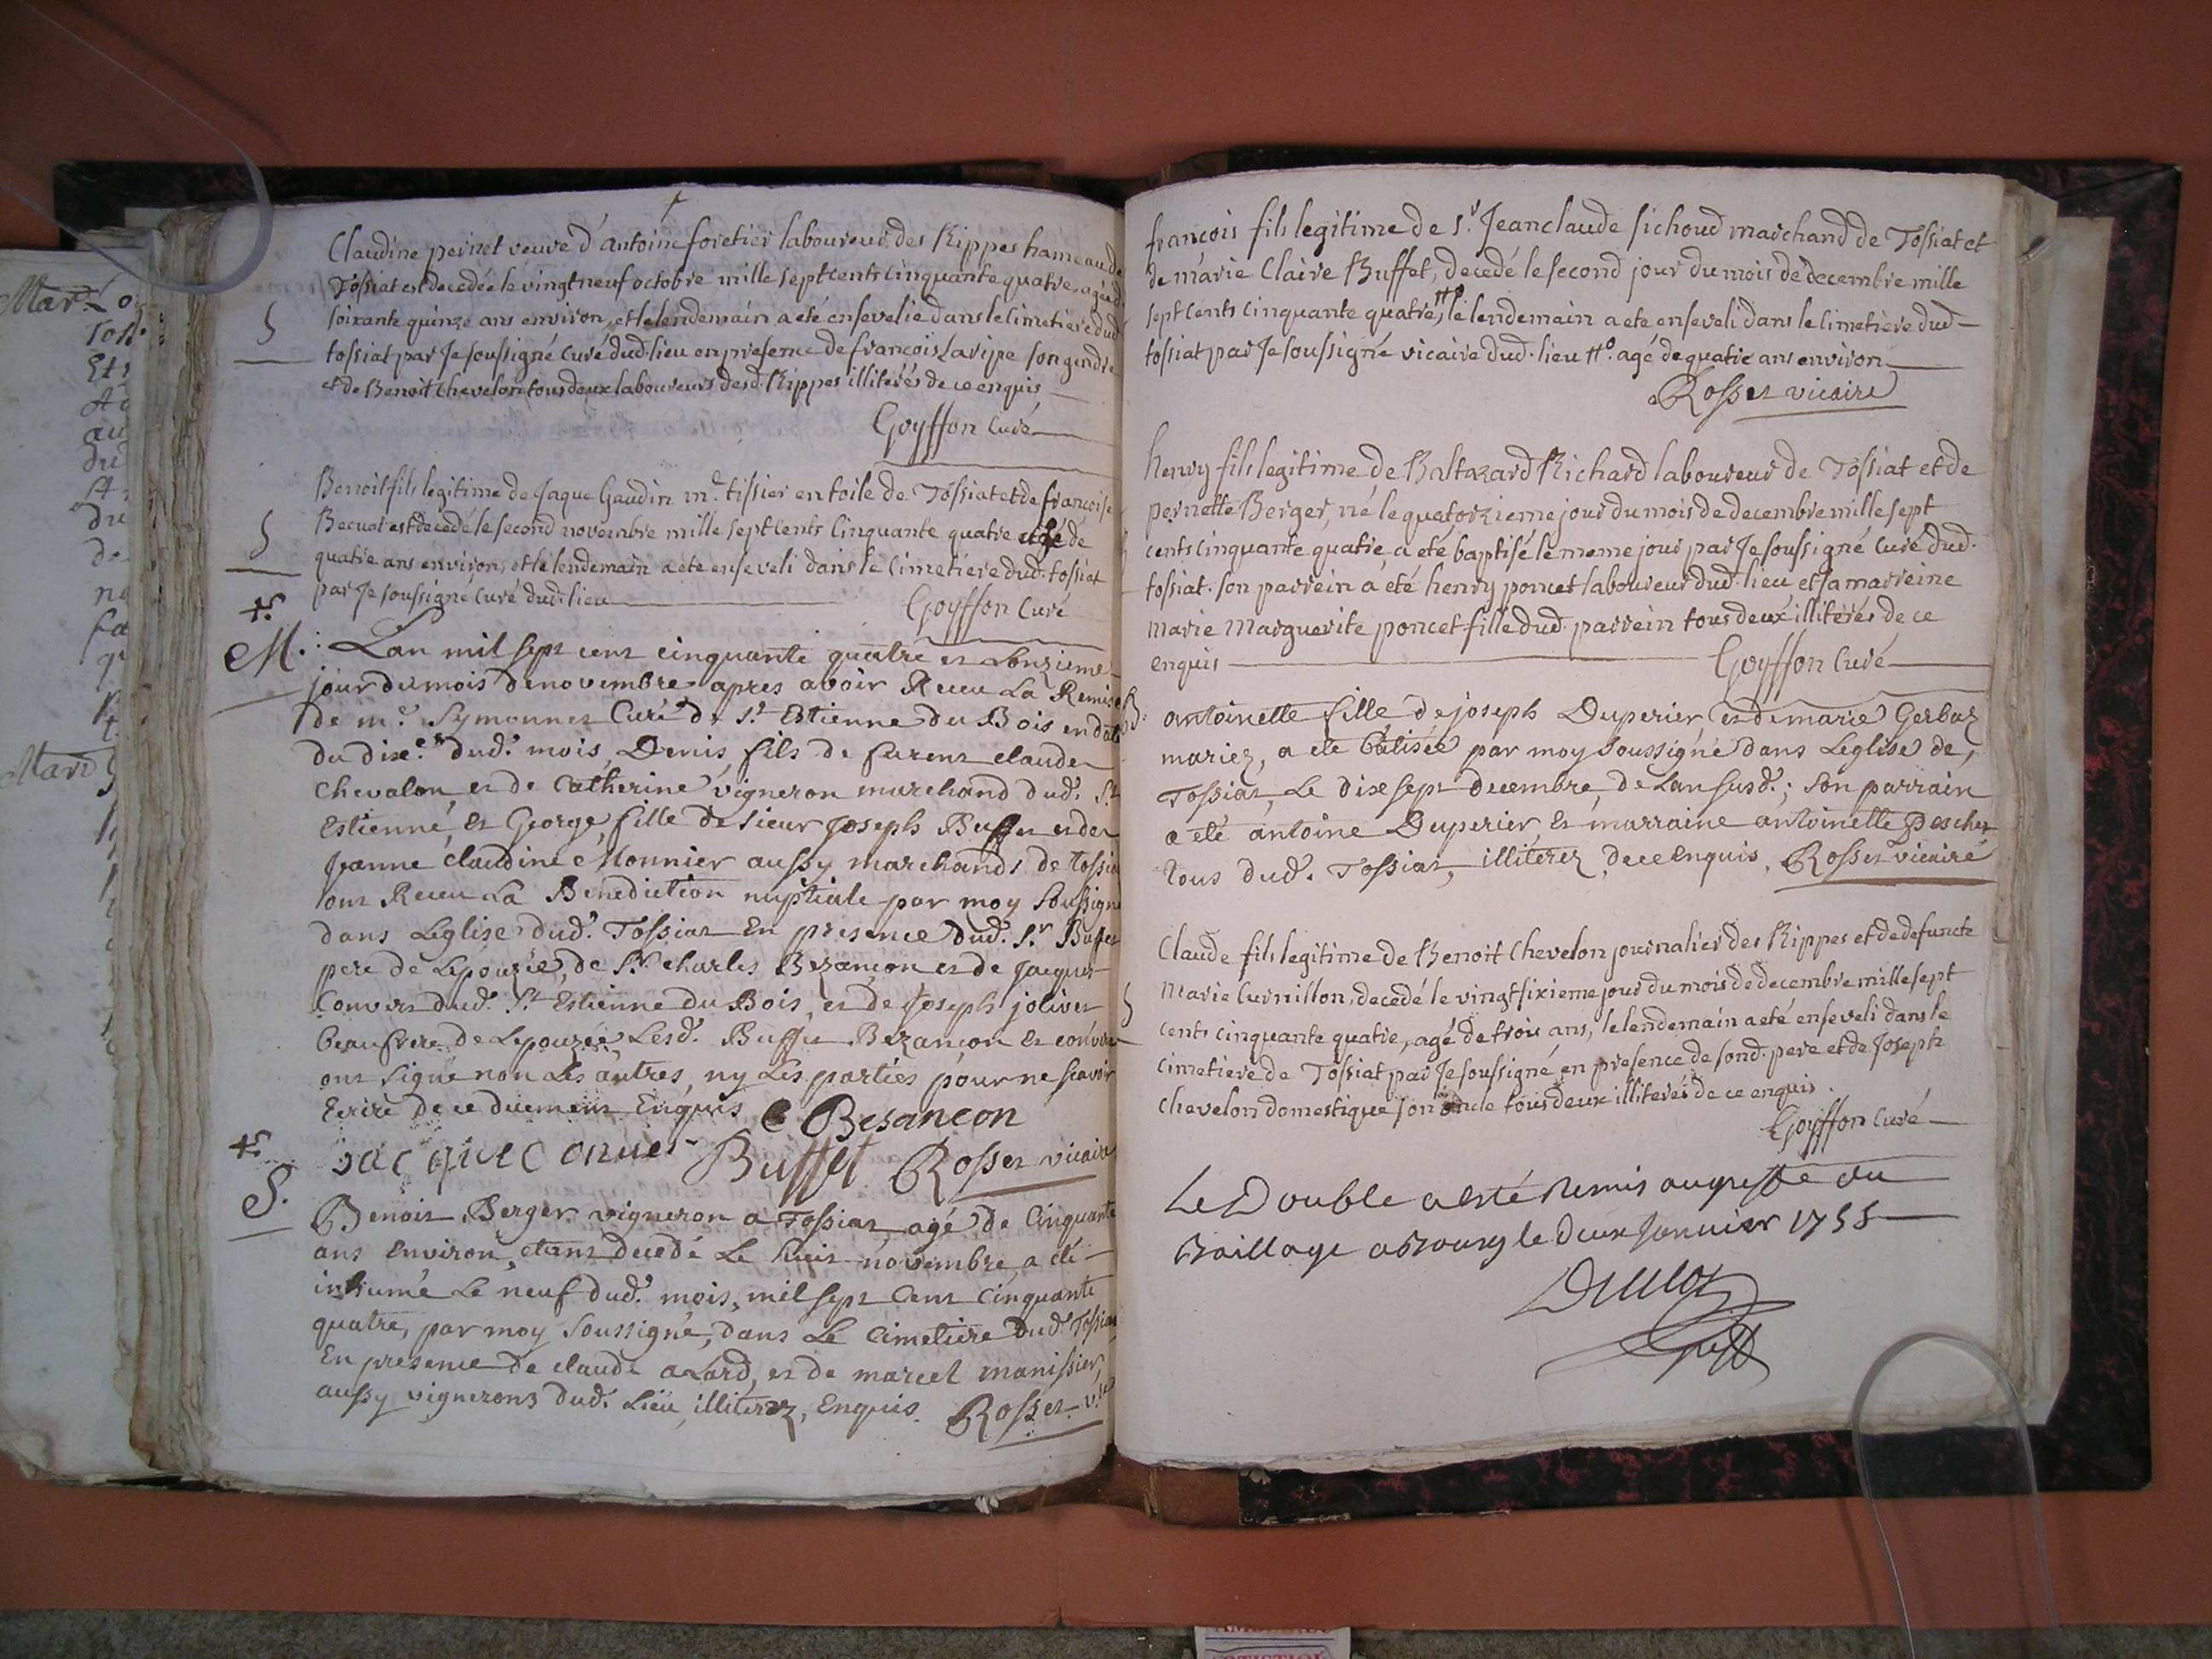 Claudine pernet veuve d'antoine foretier laboureur des Rippes hameau de
Tossiat est decedée le vingt neuf octobre mille sept cents cinquante quatre, agée d
soixante quinze ans environ, et le lendemain a eté ensevelie dans le cimetiere dud
S
tossiat par Je soussigné curé dud. lieu en presence de francois Laripe son gendre
et de Benoit Chevelon tous deux laboureurs desd. Rippes illiterés de ce enquis
Goyffon Curé
Benoit fils legitime de Jaque Gaudin md. tissier en toile de Tossiat et de francoise
S
Becuat est decedé le second novembre mille sept cents cinquante quatre agé de
quatre ans environ, et le lendemain a eté enseveli dans le cimetiere dud. tossiat
par Je soussigné curé dud. lieu
Goyffon Curé
M. Lan mil sept cent cinquante quatre et Lonzieme
jour du mois de novembre apres avoir Receu La Remise
de mr. Symonnet Curé de St. Estienne du Bois en date
du dixe. dud. mois, Denis, fils de furent claude
Chevalon, et de Catherine vigneron marchand dud. St
Estienne, et George, fille de sieur Joseph Buffet et de
Jeanne Claudine Monnier aussy marchands de tossia
ont Receu La Benediction nuptiale par moy soussigné
dans Leglise dud. Tossiat En presence dud. Sr Buffet
pere de Lepouzée, de Sr. Charles Bezançon et de Jacques
Convers dud. St Estienne du Bois, et de Joseph jolivet
beaufrere de Lepouzée Lesd. Buffet Bezançon et convers
ont signé non Les autres, ny Les parties pour ne scavoir
Ecrire de ce duement Enquis C Besancon
Jacque Conuer Buffet Rosset vicaire
S.
Benoit Berger vigneron a Tossiat, agé de Cinquante
ans Environ, etant decedé Le huit novembre, a eté
inhumé Le neuf dud. mois, mil sept Cent Cinquante
quatre, par moy soussigné, dans Le Cimetiere dud. Tossiat
En presence de claude aLard, et de marcel manissier,
aussy vignerons dud. Lieu, illiterez, Enquis. Rosset vre
francois fils legitime de Sr. Jeanclaude sichoud marchand de Tossiat et
de marie Claire Buffet, decedé le second jour du mois de decembre mille
sept cents cinquante quatre, # le lendemain a eté enseveli dans le cimetiere dud
tossiat par Je soussigné vicaire dud. lieu #o. agé de quatre ans environ
Rosset vicaire
henry fils legitime de Baltazard Richard laboureur de Tossiat et de
pernette Berger, né le quatorzieme jour du mois de decembre mille sept
cents cinquante quatre, a eté baptisé le meme jour par Je soussigné curé dud.
tossiat. son parrein a été henry poncet laboureur dud. lieu et sa marreine
Marie Marguerite poncet fille dud. parrein tous deux illiterés de ce
enquis
Goyffon Curé
B:
antoinette fille de joseph Duperier et de marie Gerbaz
mariez, a eté batisée par moy soussigné dans Leglise de,
Tossiat, Le dixsept decembre, de Lan susd.; son parrain
a eté antoine Duperier, et marraine antoinette Descher
tous dud. Tossiat, illiterez, de ce enquis, Rosset vicaire
Claude fils legitime de Benoit Chevelon journalier des Rippes et de defuncte
Marie Curnillon, decedé le vingt sixieme jour du mois de decembre mille sept
S
cents cinquante quatre, agé de trois ans, le lendemain a eté enseveli dans le
cimetiere de Tossiat par Je soussigné en presence de sond. pere et de Joseph
Chevelon domestique son oncle tous deux illiterés de ce enquis.
Goyffon Curé
Le Double a esté Remis au greffe du
Baillage a Bourg le deux Janvier 1755